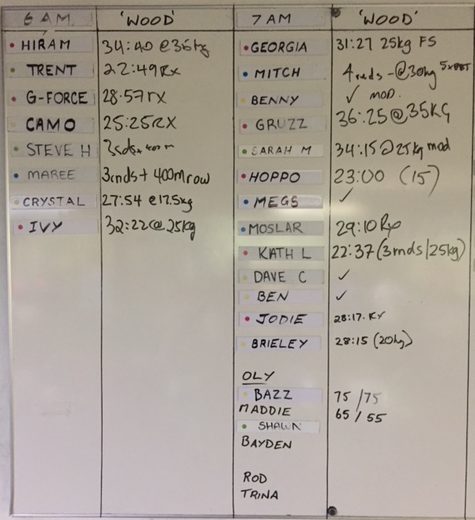 6 AM. 'WOOD'
HIRAM 34:40 @36kg
TRENT 22:49 Rx
G-FORCE 28:57 rx
CAMO 25:25 RX
STEVE H
MAREE 3rnds + 400m row
CRYSTAL 27:54 @17.5kg
IVY 32:22 @ 25kg
7 AM 'WOOD'
GEORGIA 31:27 25kg FS
MITCH 4 rnds - @30kg
BENNY ✓ MOD.
GRUZZ 36:25 @ 35KG
SARAH M 34:15 @ 25kg mod
HOPPO 23:00 (15)
MEGS ✓
MOSLAR 29:10 Rx
KATH L 22:37 (3 rnds/25kg)
DAVE C ✓
BEN ✓
JODIE 28:17. RX
BRIELEY 28:15 (20kg)
OLY
BAZZ 75 / 75
MADDIE 65 / 55
SHAWN
BAYDEN
ROD
TRINA